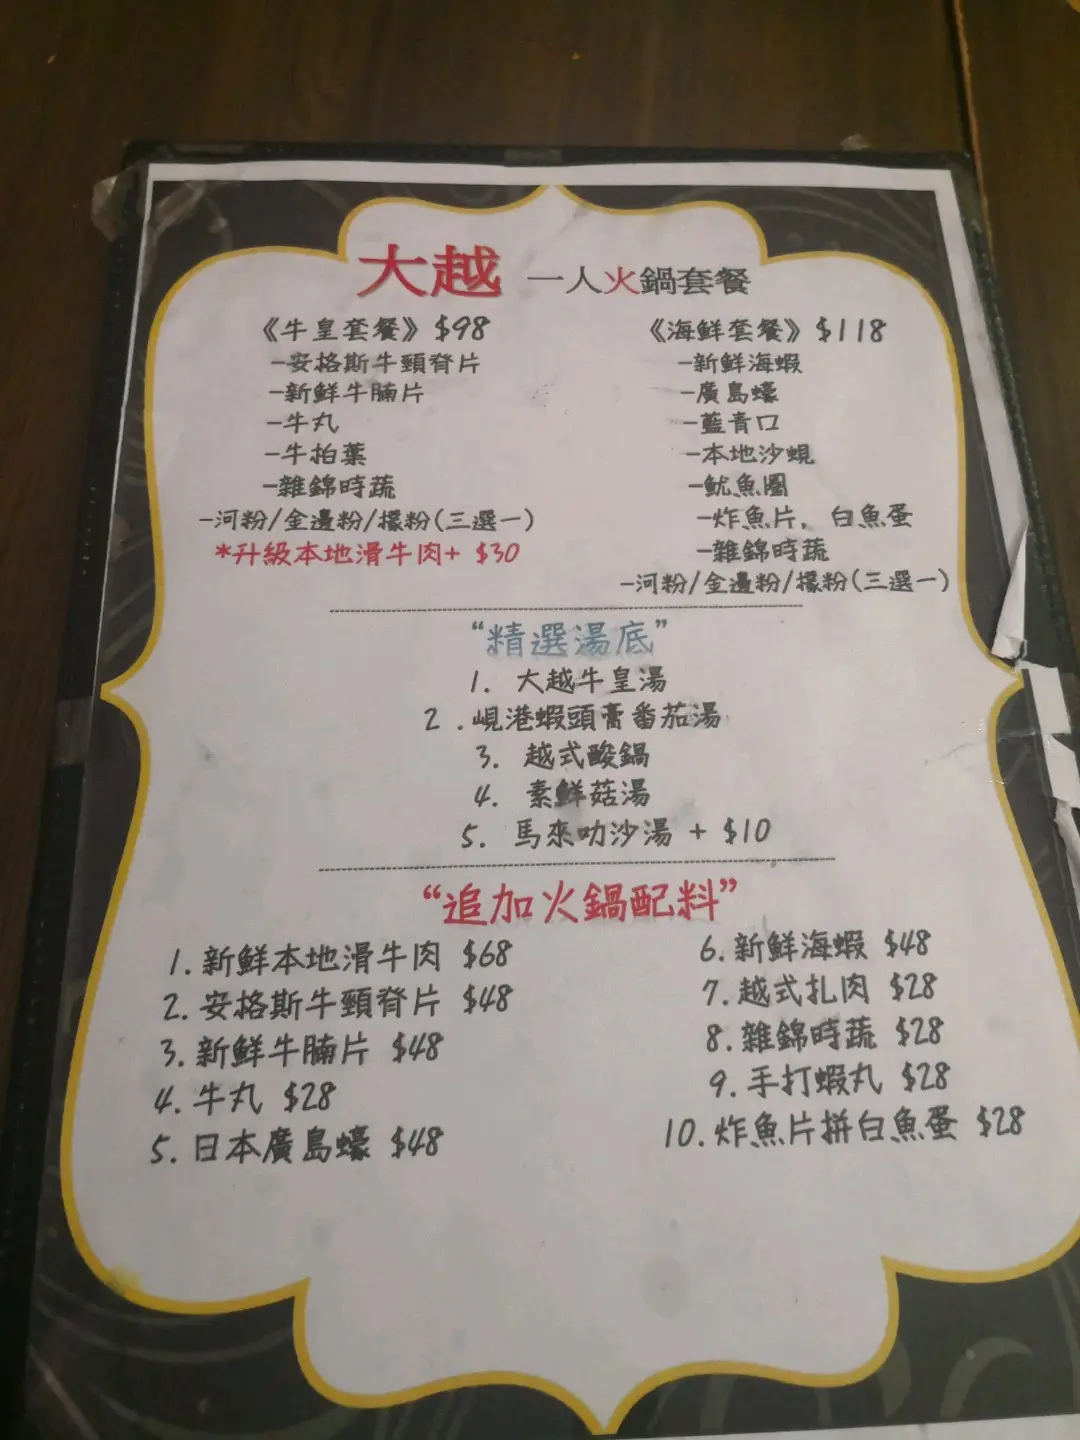 大越 一人火鍋套餐
《牛皇套餐》$98
-安格斯牛頸脊片
-新鮮牛腩片
-牛丸
-牛柏葉
-雜錦時蔬
-河粉/金邊粉/檬粉(三選一)
*升級本地滑牛肉+ $30
《海鮮套餐》$118
-新鮮海蝦
-廣島蠔
-藍青口
-本地沙蜆
-魷魚圈
-炸魚片, 白魚蛋
-雜錦時蔬
-河粉/金邊粉/檬粉(三選一)
“精選湯底”
1. 大越牛皇湯
2 .峴港蝦頭膏番茄湯
3. 越式酸鍋
4. 素鮮菇湯
5. 馬來叻沙湯 + $10
“追加火鍋配料”
1.新鮮本地滑牛肉 $68
2.安格斯牛頸脊片 $48
3.新鮮牛腩片 $48
4.牛丸 $28
5.日本廣島蠔 $48
6.新鮮海蝦 $48
7.越式扎肉 $28
8.雜錦時蔬 $28
9.手打蝦丸 $28
10.炸魚片拼白魚蛋 $28